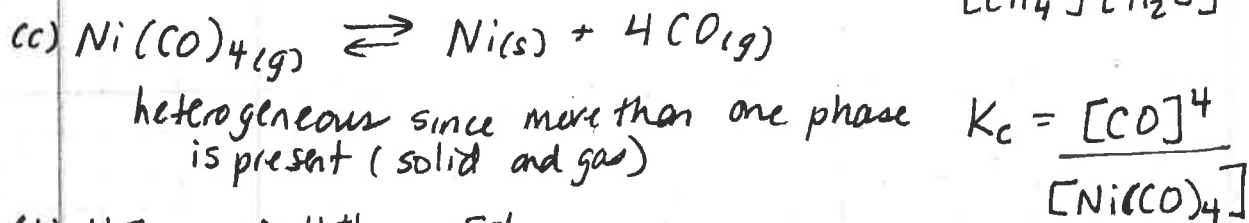 (c) Ni(CO)4(g) ⇌ Ni(s) + 4CO(g)
heterogeneous since more than one phase
is present (solid and gas)
Kc = [CO]^4
[Ni(CO)4]